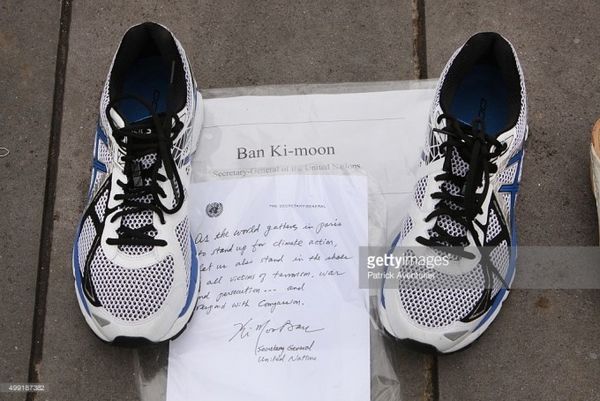 Ban Ki-moon
Secretary-General of the United Nations
THE SECRETARY-GENERAL
As the world gathers in Paris
to stand up for climate action,
let us also stand in the shoes
all victims of terrorism, war
and persecution... and
respond with Compassion.
Ki Moon Ban
Secretary General
United Nations
gettyimages
Patrick Aventurier
499187382